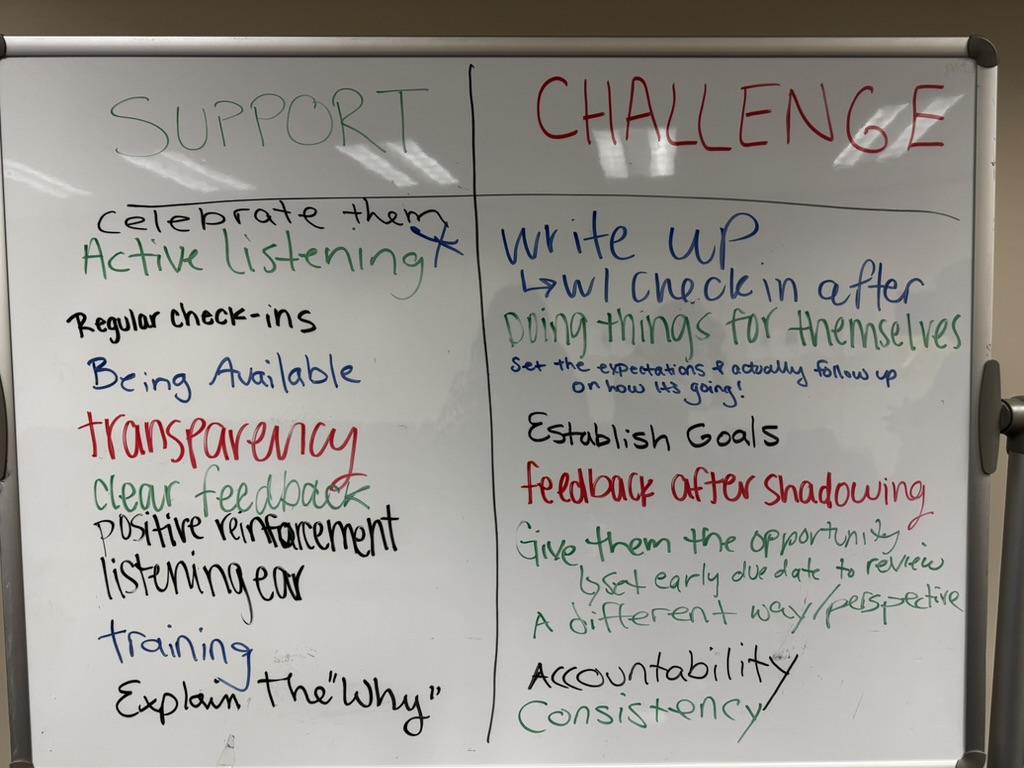 SUPPORT
Celebrate them
Active listening
Regular check-ins
Being Available
transparency
clear feedback
positive reinforcement
listening ear
training
Explain The "Why"
CHALLENGE
Write up
↳ w/ check in after
Doing things for themselves
Set the expectations & actually follow up
on how it's going!
Establish Goals
feedback after shadowing
Give them the opportunity
↳ set early due date to review
A different way/perspective
Accountability
Consistency